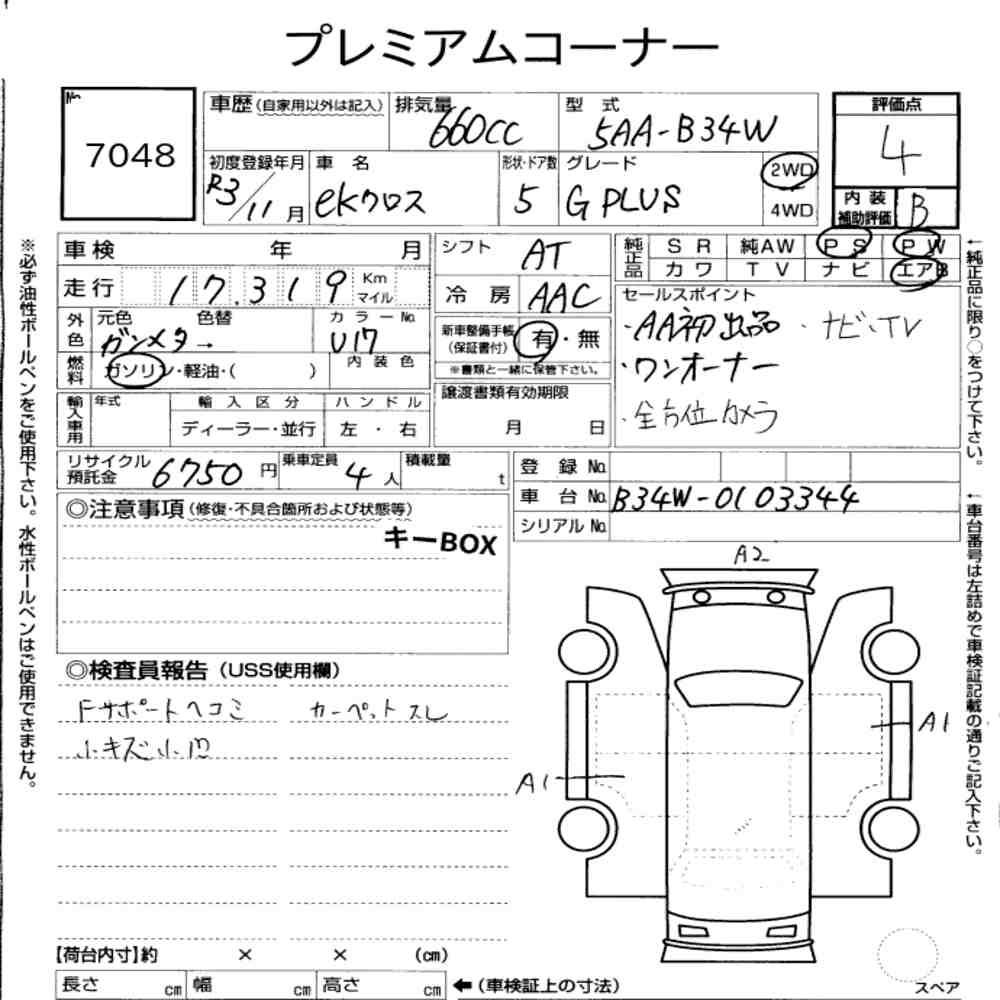 プレミアムコーナー
No.
7048
車歴 (自家用以外は記入)
排気量 660cc
型 式 5AA-B34W
評価点
4
初度登録年月 R3/11月
車 名 ekクロス
形状・ドア数 5
グレード G PLUS
2WD
4WD
内 装
補助評価 B
車検 年 月
シフト AT
純正品 SR 純AW PS PW
カワ TV ナビ エアB
走行 17.319 Km
マイル
冷 房 AAC
セールスポイント
・AA初出品 ・ナビ・TV
・ワンオーナー
・全方位カメラ
外色 元色 色替 カラーNo.
ガンメタ→ U17
新車整備手帳
(保証書付) 有・無
※書類と一緒に保管下さい。
燃料 ガソリン・軽油・( ) 内 装 色
譲渡書類有効期限
月 日
輸入車用 年式 輸 入 区 分 ハ ン ド ル
ディーラー・並行 左 ・ 右
リサイクル
預託金 6750円
乗車定員 4人
積載量 t
登 録 No.
車 台 No. B34W-0103344
シリアル No.
◎注意事項 (修復・不具合箇所および状態等)
キーBOX
◎検査員報告 (USS使用欄)
Fサポートヘコミ カーペットスレ
小キズ小凹
A2
A1
A1
【荷台内寸】約 × × (cm)
長さ cm 幅 cm 高さ cm ←(車検証上の寸法)
スペア
※必ず油性ボールペンをご使用下さい。水性ボールペンはご使用できません。
←純正品に限り○をつけて下さい。
←車台番号は左詰めで車検証記載の通りご記入下さい。